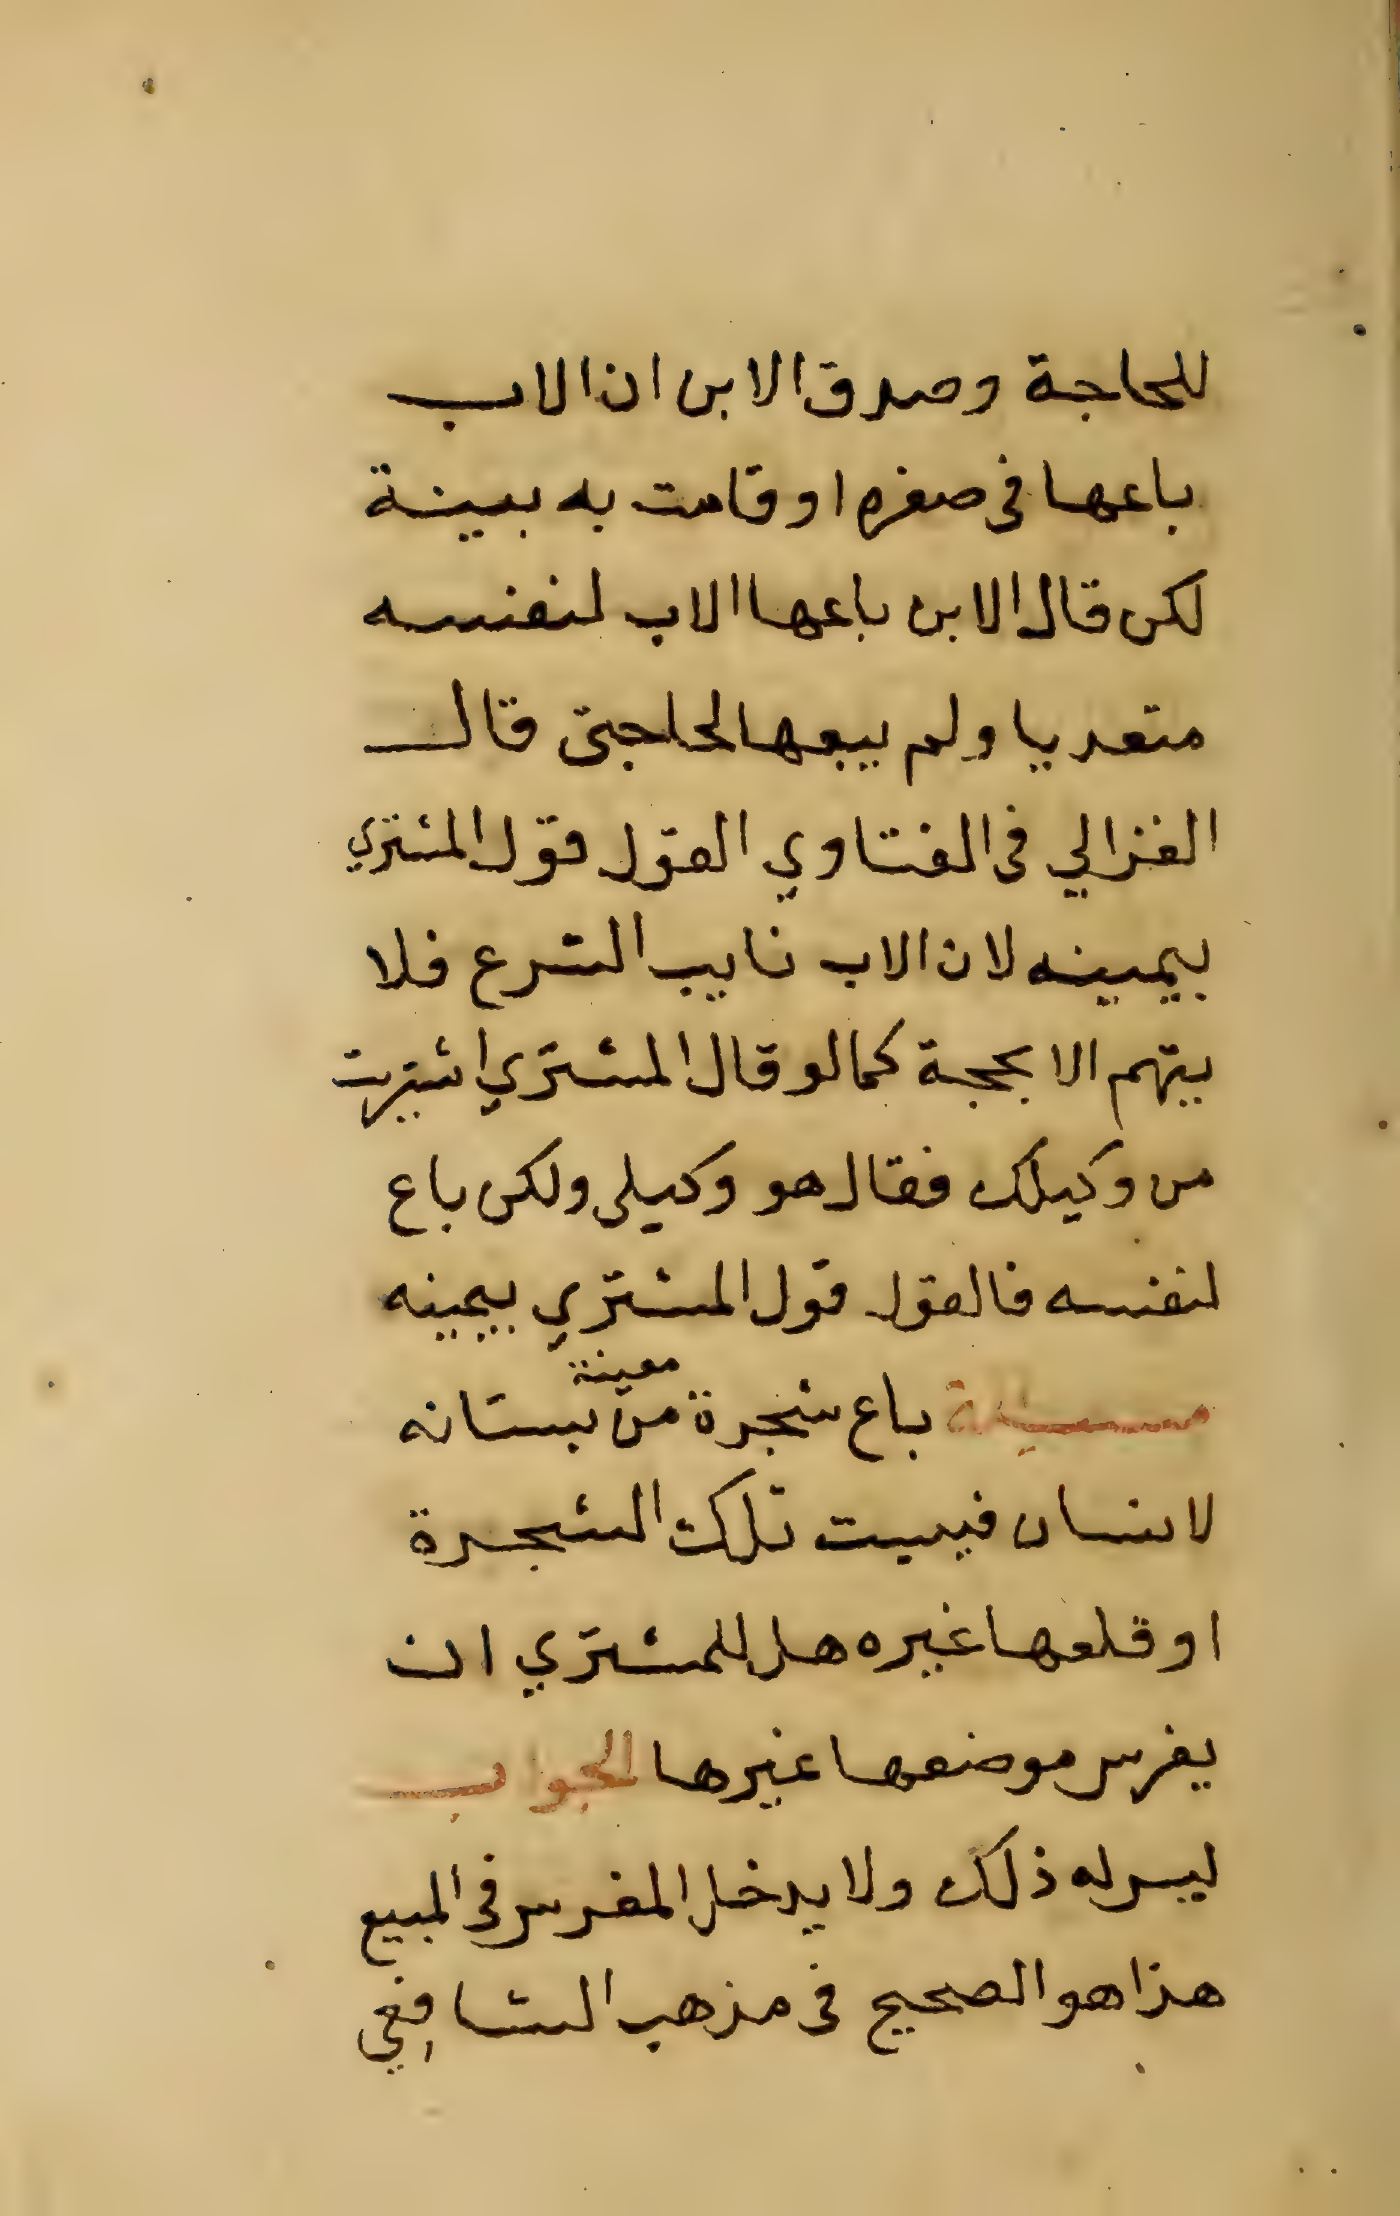 للحاجة وصدق الابن ان الاب
باعها في صغره او قامت به ببينة
لكن قال الابن باعها الاب لنفسه
متعديا ولم يبعها لحاجتى قال
الغزالي في الفتاوي القول قول المشتري
بيمينه لان الاب نايب الشرع فلا
يتهم الا بحجة كما لو قال المشتري اشتريت
من وكيلك فقال هو وكيلى ولكن باع
لنفسه فالقول قول المشتري بيمينه
مسيلة باع شجرة معينة من بستانه
لانسان فيبست تلك الشجرة
او قلعها غيره هل للمشتري ان
يغرس موضعها غيرها الجواب
ليس له ذلك ولا يدخل المغرس في المبيع
هذا هو الصحيح في مذهب الشافعي